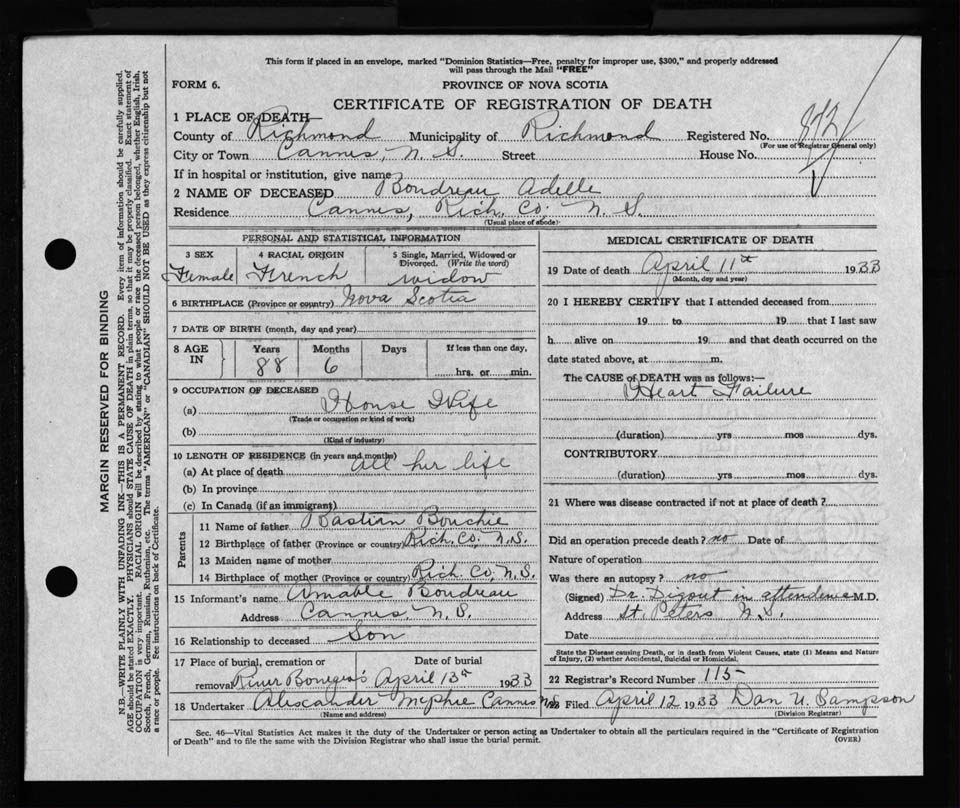 This form if placed in an envelope, marked "Dominion Statistics—Free, penalty for improper use, $300," and properly addressed
will pass through the Mail "FREE"
FORM 6.
PROVINCE OF NOVA SCOTIA
CERTIFICATE OF REGISTRATION OF DEATH
1 PLACE OF DEATH—
County of Richmond Municipality of Richmond Registered No.
(For use of Registrar General only)
City or Town Cannes, N. S. Street House No.
If in hospital or institution, give name
2 NAME OF DECEASED Boudreau Adelle
Residence Cannes, Rich. Co. N. S.
(Usual place of abode)
PERSONAL AND STATISTICAL INFORMATION
3 SEX Female
4 RACIAL ORIGIN French
5 Single, Married, Widowed or
Divorced. (Write the word)
widow
6 BIRTHPLACE (Province or country) Nova Scotia
7 DATE OF BIRTH (month, day and year)
8 AGE IN Years Months Days If less than one day,
88 6 hrs. or min.
9 OCCUPATION OF DECEASED
(a) House Wife
(Trade or occupation or kind of work)
(b)
(Kind of industry)
10 LENGTH OF RESIDENCE (in years and months)
(a) At place of death all her life
(b) In province
(c) In Canada (if an immigrant)
Parents
11 Name of father Bastien Bouchie
12 Birthplace of father (Province or country) Rich. Co, N.S.
13 Maiden name of mother
14 Birthplace of mother (Province or country) Rich Co, N. S.
15 Informant's name Amable Boudreau
Address Cannes, N. S.
16 Relationship to deceased Son
17 Place of burial, cremation or Date of burial
removal River Bourgeois April 13th 1933
18 Undertaker Alexander McPhie Cannes NS
(Name and address)
MEDICAL CERTIFICATE OF DEATH
19 Date of death April 11th 1933
(Month, day and year)
20 I HEREBY CERTIFY that I attended deceased from
19 to 19 that I last saw
h alive on 19 and that death occurred on the
date stated above, at m.
The CAUSE of DEATH was as follows:—
Heart Failure
(duration) yrs mos dys.
CONTRIBUTORY
(duration) yrs mos dys.
21 Where was disease contracted if not at place of death?
Did an operation precede death? no Date of
Nature of operation
Was there an autopsy? no
(Signed) Dr. Digout in attendence M.D.
Address St. Peters N.S.
Date
State the Disease causing Death, or in death from Violent Causes, state (1) Means and Nature
of Injury, (2) whether Accidental, Suicidal or Homicidal.
22 Registrar's Record Number 115
23 Filed April 12 1933 Dan U. Sampson
(Division Registrar)
Sec. 46—Vital Statistics Act makes it the duty of the Undertaker or person acting as Undertaker to obtain all the particulars required in the "Certificate of Registration
of Death" and to file the same with the Division Registrar who shall issue the burial permit.
(OVER)
MARGIN RESERVED FOR BINDING
N.B.—WRITE PLAINLY WITH UNFADING INK—THIS IS A PERMANENT RECORD. Every item of information should be carefully supplied.
AGE should be stated EXACTLY. PHYSICIANS should STATE CAUSE OF DEATH in plain terms, so that it may be properly classified. Exact statement of
OCCUPATION is very important. RACIAL ORIGIN will be described by stating to what people or race the deceased person belonged, whether English, Irish,
Scotch, French, German, Russian, Ruthenian, etc. The terms "AMERICAN" or "CANADIAN" SHOULD NOT BE USED as they express citizenship but not
a race or people. See instructions on back of Certificate.